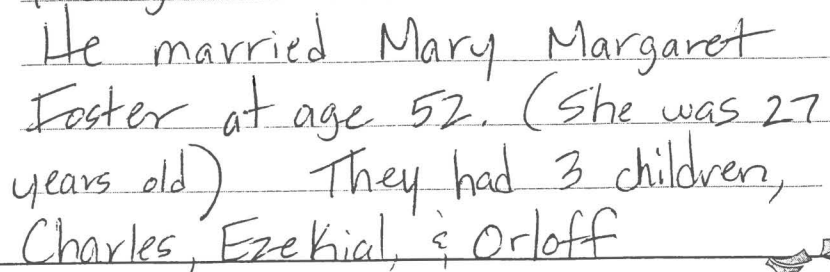 He married Mary Margaret
Foster at age 52. (She was 27
years old) They had 3 children,
Charles, Ezekial, & Orloff